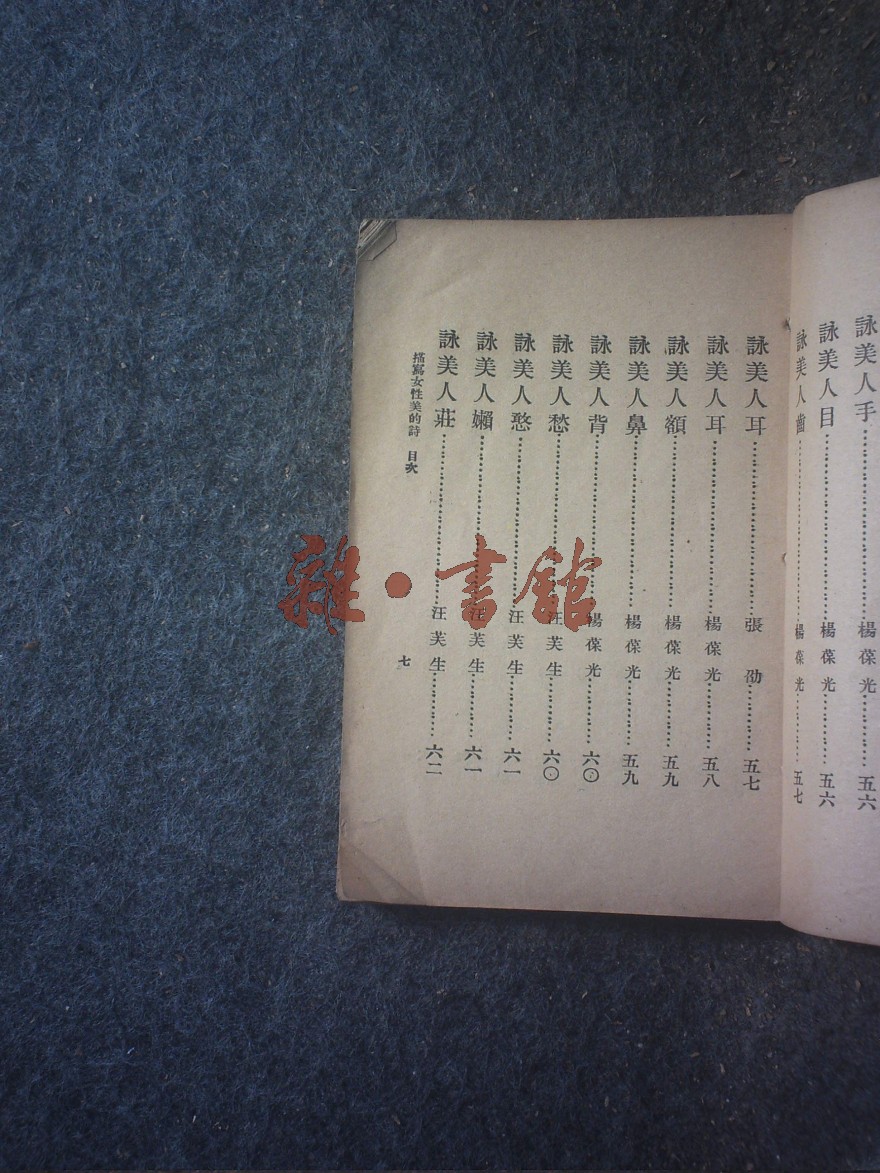 詠美人手……楊葆光……五六
詠美人目……楊葆光……五六
詠美人齒……楊葆光……五七
詠美人耳……張劭……五七
詠美人耳……楊葆光……五八
詠美人額……楊葆光……五九
詠美人鼻……楊葆光……五九
詠美人背……楊葆光……六〇
詠美人愁……汪芙生……六〇
詠美人憨……汪芙生……六一
詠美人嬾……汪芙生……六一
詠美人莊……汪芙生……六二
描寫女性美的詩 目次
七
雜·書館